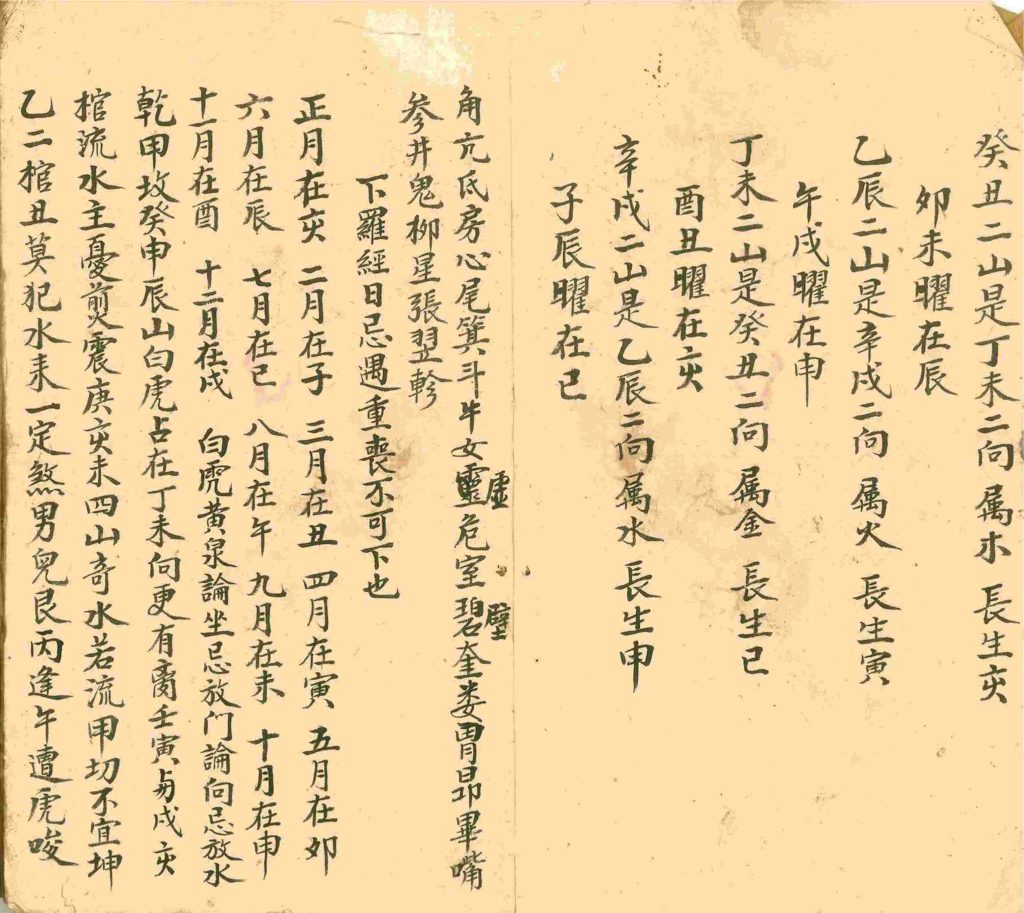 癸丑二山是丁未二向 属木 長生亥
卯未曜在辰
乙辰二山是辛戌二向 属火 長生寅
午戌曜在申
丁未二山是癸丑二向 属金 長生巳
酉丑曜在亥
辛戌二山是乙辰二向 属水 長生申
子辰曜在巳
角亢氐房心尾箕斗牛女靈危室碧奎娄胃昴畢嘴
虚
壁
参井鬼柳星張翌軫
下羅經日忌遇重喪不可下也
正月在亥 二月在子 三月在丑 四月在寅 五月在卯
六月在辰 七月在巳 八月在午 九月在未 十月在申
十一月在酉 十二月在戌 白虎黄泉論坐忌放门論向忌放水
乾甲坟癸申辰山白虎占在丁未向更有离壬寅与戌亥
棺流水主憂煎震庚亥未四山奇水若流甲切不宜坤
乙二棺丑莫犯水来一定煞男児艮丙逢午遭虎唆